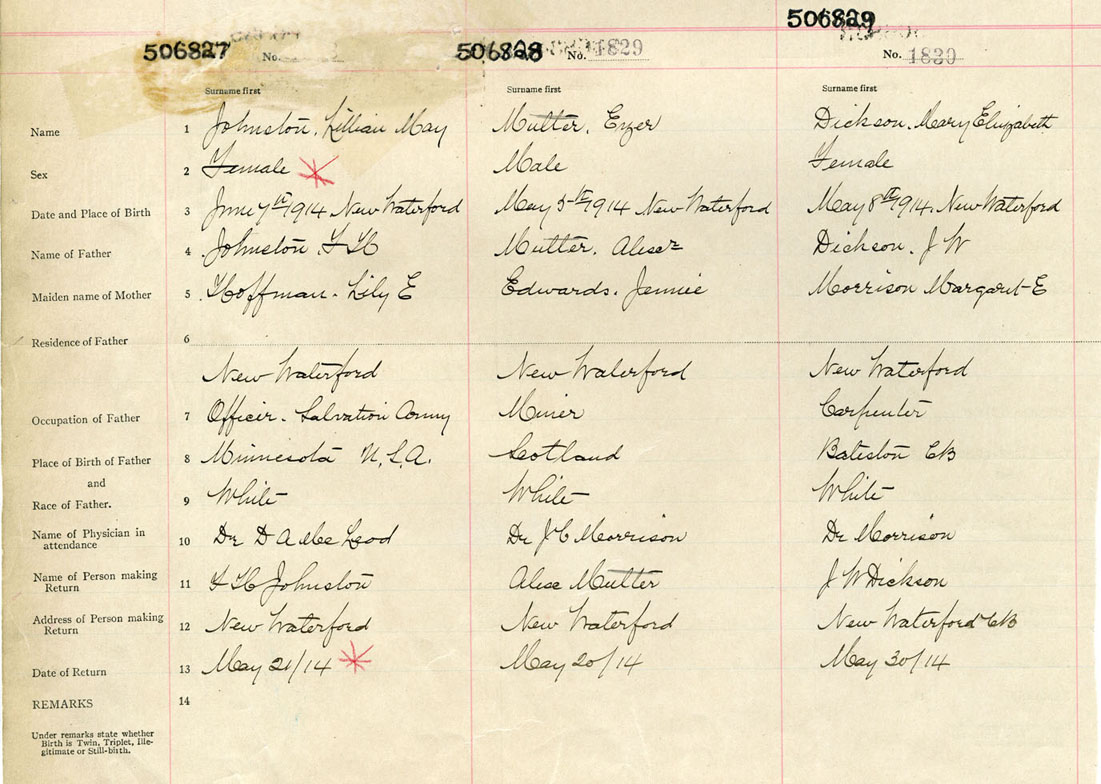 506827 506828 506829
No. No. 1829 No. 1830
Surname first Surname first Surname first
Name 1 Johnston, Lillian May Mutter, Dickson, Mary Elizabeth
Sex 2 Female Male Female
Date and Place of Birth 3 June 7th 1914 New Waterford May 5th 1914 New Waterford May 8th 1914, New Waterford
Name of Father 4 Johnston, Mutter, Dickson, J W
Maiden name of Mother 5 Hoffman. Lily E Edwards. Jennie Morrison Margaret E
Residence of Father 6
New Waterford New Waterford New Waterford
Occupation of Father 7 Officer. Salvation Army Miner Carpenter
Place of Birth of Father 8 Minnesota U.S.A. Scotland Bateston CB
and
Race of Father. 9 White White White
Name of Physician in
attendance 10 Dr D A Mc Leod Dr J C Morrison Dr Morrison
Name of Person making
Return 11 Johnston Mutter J W Dickson
Address of Person making
Return 12 New Waterford New Waterford New Waterford CB
Date of Return 13 May 21/14 May 20/14 May 30/14
REMARKS 14
Under remarks state whether
Birth is Twin, Triplet, Ille-
gitimate or Still-birth.